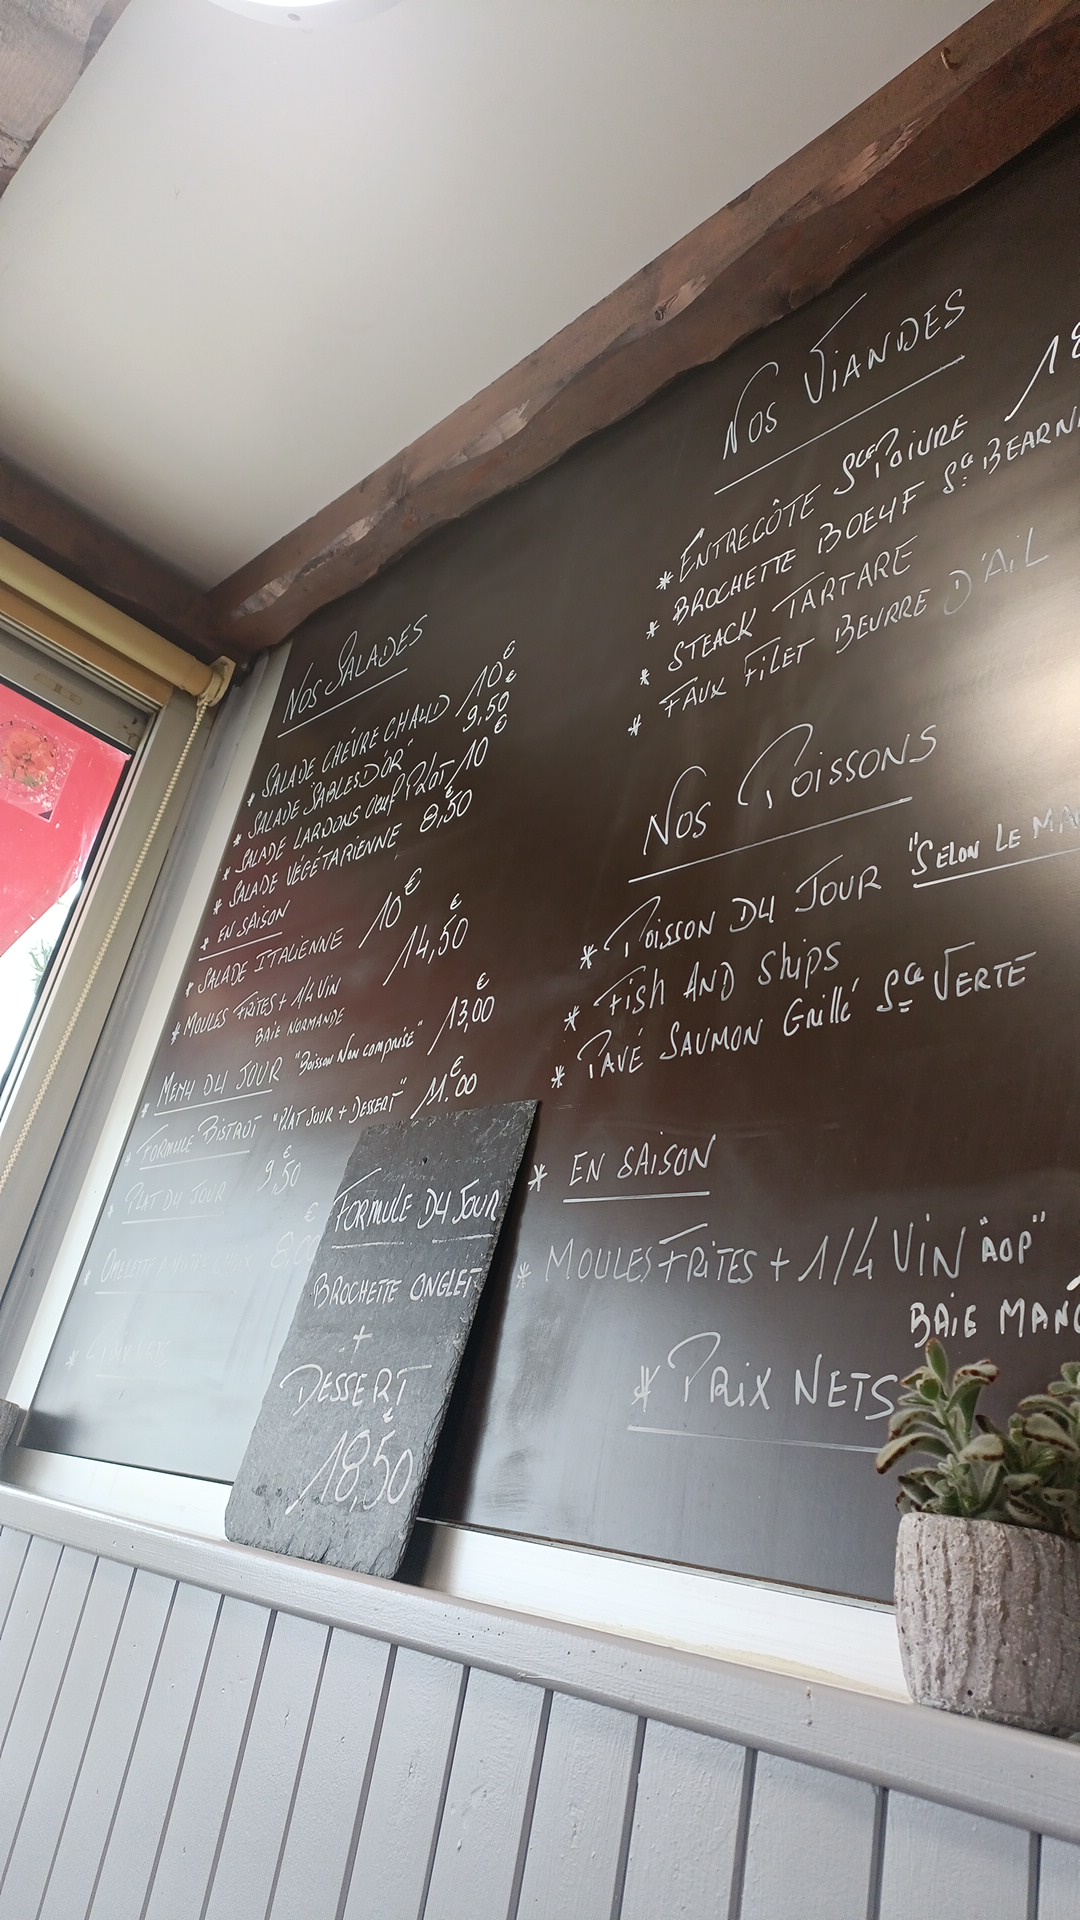 Nos Salades
* Salade Chèvre Chaud 10€
* Salade "Sables D'or" 9,50€
* Salade Lardons Oeuf Plat 10€
* Salade Végétarienne 8,50€
* En Saison
* Salade Italienne 10€
* Moules Frites + 1/4 Vin 14,50€
Baie Normande
* Menu du Jour "Boisson Non comprise" 13,00€
* Formule Bistrot "Plat Jour + Dessert" 11.00€
* Plat du Jour 9,50€
* Omelette 8,00€
Formule du Jour
Brochette Onglet
+
Dessert
18,50€
Nos Viandes
* Entrecôte Sce Poivre 18
* Brochette Boeuf Sce Bearn
* Steack Tartare
* Faux Filet Beurre d'Ail
Nos Poissons
* Poisson du Jour "Selon le Ma
* Fish and Ships
* Pavé Saumon Grillé Sce Verte
* En Saison
* Moules Frites + 1/4 Vin "AOP"
Baie Man
* Prix Nets